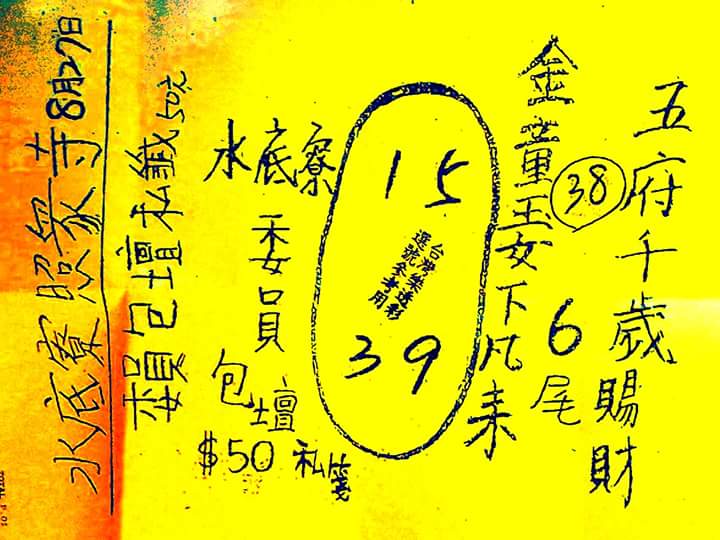 五府千歲賜財
38
6尾
金童玉女下凡來
15
台灣樂透彩
選號參考用
39
水底寮
委員
包壇
$50 私箋
賴包壇私籤50元
水底寮照眾寺8月27日